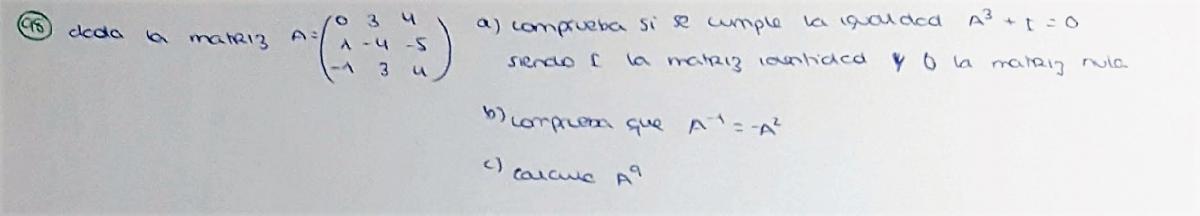 98 dada la matriz A = ( 0 3 4 a) comprueba si se cumple la igualdad A³ + I = 0
1 -4 -5 siendo I la matriz identidad y 0 la matriz nula.
-1 3 4 )
b) comprueba que A⁻¹ = -A²
c) calcule A⁹